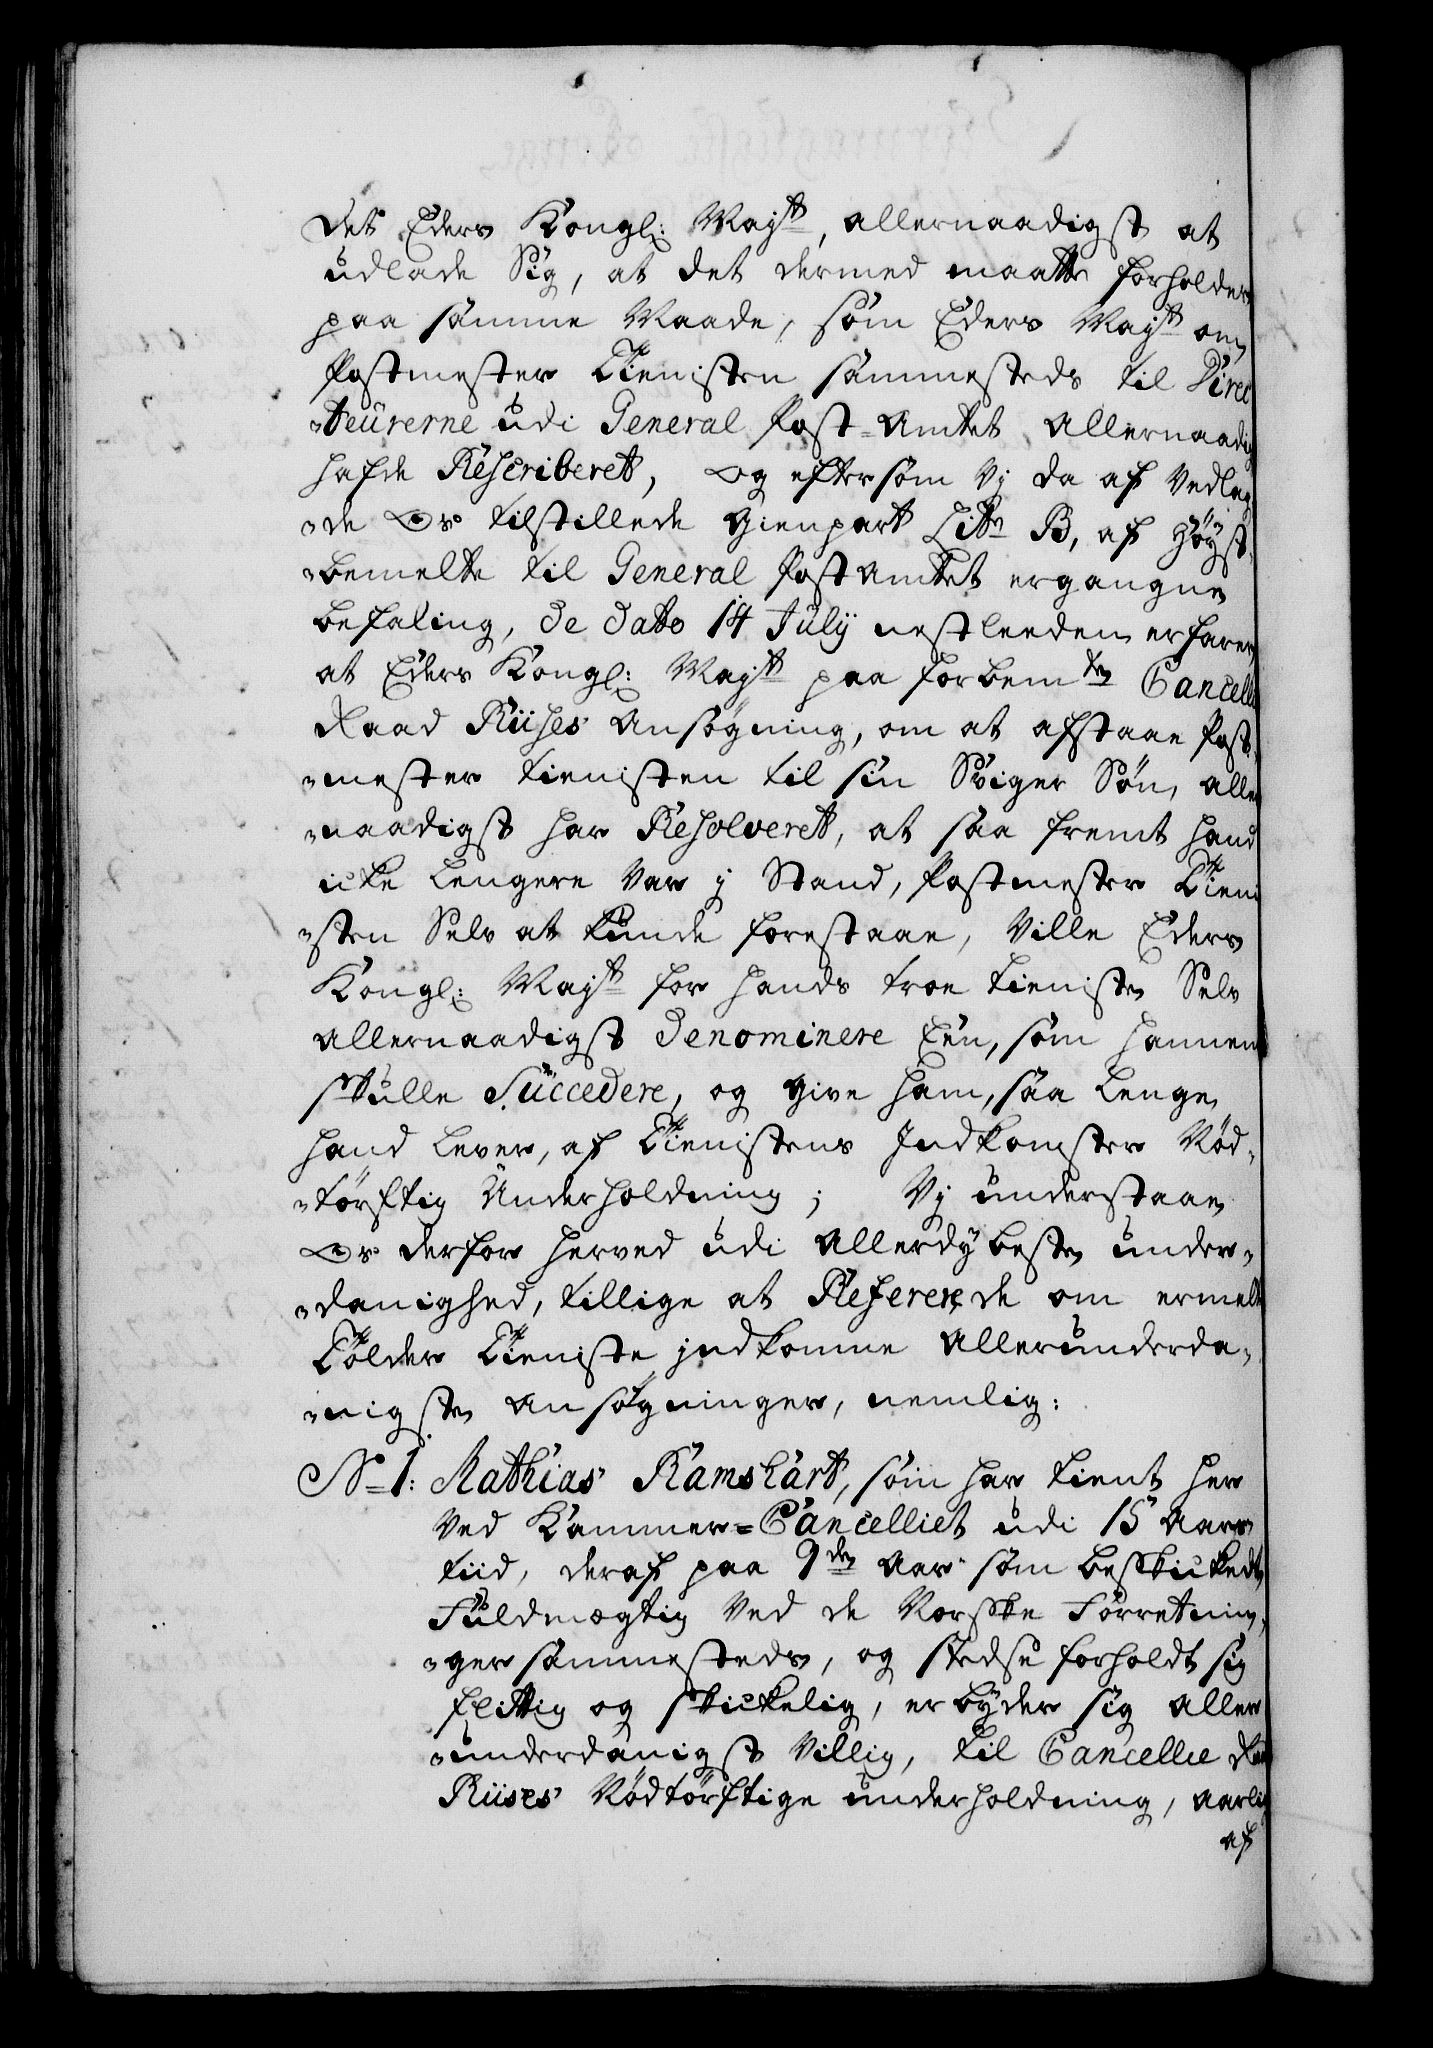 det Eders Kongl: Mayst, allernaadigst at
udlade Sig, at det dermed maatte forholdes
paa samme Maade, som Eders Mayst om
Postmester Tienisten sammesteds til Direc
-teürerne udi General Post-Amtet Allernaadig
hafde Rescriberet, Og eftersom Vj da af vedlag
-de Os tilstillede Gienpart Litr B, af Høyst-
-bemelte til General Post Amtet ergangne
befaling, de dato 14 Julÿ nestleeden erfarer
at Eders Kongl: Mayst paa forbemte Cancellie
Raad Riises Ansøgning, om at afstaae Post-
-mester tienisten til sin Sviger Søn, aller
-naadigst har Resolveret, at saa fremt hand
icke lengere var j Stand, Postmester Tieni
-sten Selv at kunde forestaae, Ville Eders
Kongl: Mayst for hands troe tieniste Selv
allernaadigst denominere Een, som hannem
skulle Succedere, og give ham, saa lenge
hand lever, af Tienistens Indkomster Nød-
-törftig Underholdning; Vj understaae
Os derfor herved udi allerdÿbeste under-
-danighed, tillige at Referere de om ermelte
Tolder Tieniste jndkomne Allerunderda-
-nigste ansøgninger, nemlig:
No 1: Mathias Ramshart, som har tient her
ved Kammer-Cancelliet udi 15 Aars
tiid, deraf paa 9de Aar som beskicket
Fuldmægtig ved de Norske Forretnin-
-ger sammesteds, og stedse forholdt sig
flittig og skickelig, erbÿder sig aller
-underdanigst villig, til Cancellie Raad
Riises Nødtörftige underholdning, aarlig
af